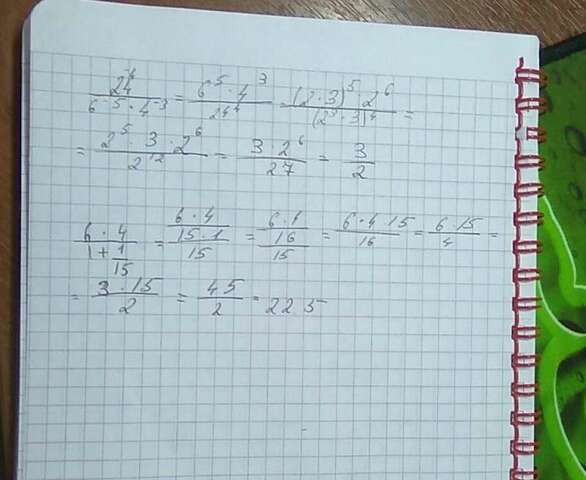 24^-4 / 6^-5 · 4^-3 = 6^5 · 4^3 / 24^4 = (2 · 3)^5 · 2^6 / (2^3 · 3)^4 =
= 2^5 · 3 · 2^6 / 2^12 = 3 2^6 / 27 = 3 / 2
6 · 4 / 1 + 1/15 = 6 · 4 / 15 · 1 / 15 = 6 · 4 / 16 / 15 = 6 · 4 15 / 16 = 6 15 / 4 =
= 3 · 15 / 2 = 45 / 2 = 22 5